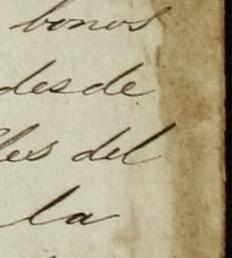 bonos
desde
les del
la